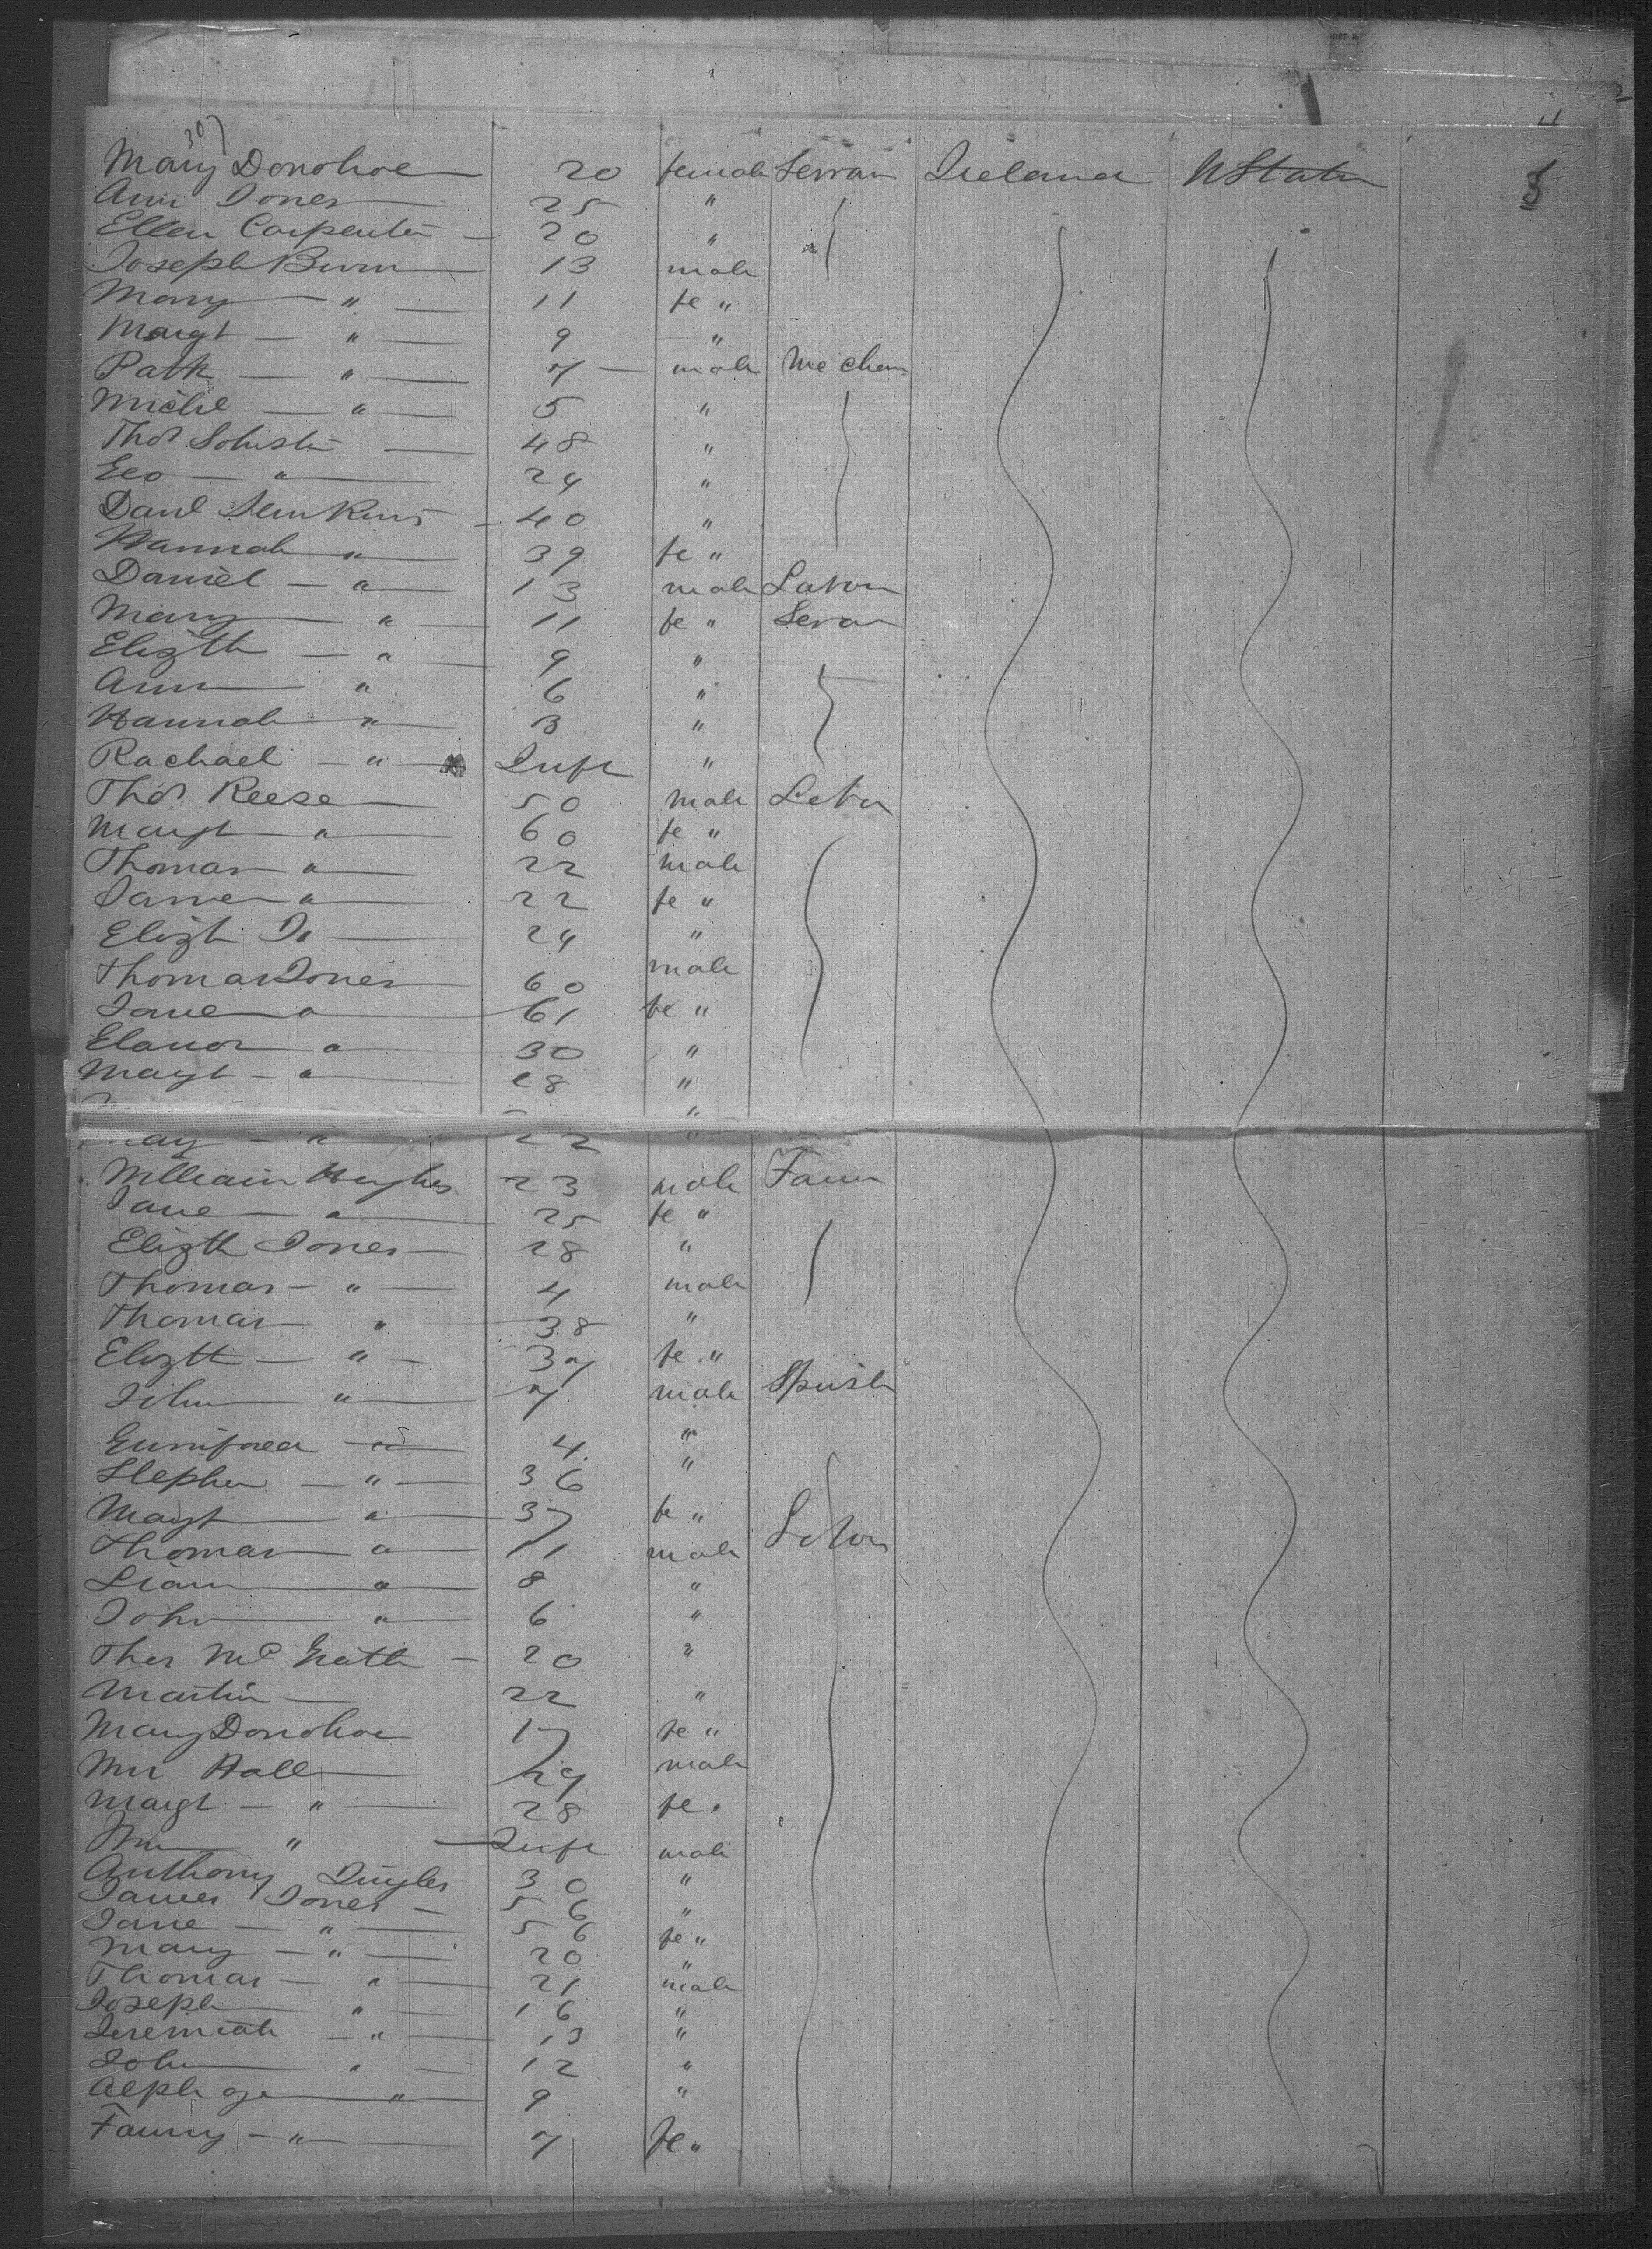 307
4
Mary Donohoe 20 female Servan Ireland U States
Ann Jones 25 "
Ellen Carpenter 20 "
Joseph Burn 13 male
Mary " 11 fe "
Margt " 9 "
Patk " 7 male Mechan
Michl " 5 "
Thos 48 "
Geo " 24 "
Danl Jenkins 40 "
Hannah " 39 fe "
Daniel " 13 male Labou
Mary " 11 fe " Servan
Elizth " 9 "
Ann " 6 "
Hannah " 3 "
Rachael " Inft "
Thos Reese 50 male Labor
Margt " 60 fe "
Thomas " 22 male
" 22 fe "
Elizth Do 24 "
Thomas Jones 60 male
Jane " 61 fe "
Elanor " 30 "
Margt " 18 "
"
" 22 "
William Hughes 23 male Farm
Jane " 25 fe "
Elizth Jones 28 "
Thomas " 4 male
Thomas " 38 "
Elizth " 37 fe "
John " 7 male
" 4 "
Stephen " 36 "
Margt " 37 fe "
Thomas " 11 male Labor
" 8 "
John " 6 "
Thos McGrath 20 "
Martin 22 "
Mary Donohoe 17 fe "
Wm Hall 29 male
Margt " 28 fe "
Wm " Inft male
Anthony 30 "
James Jones 56 "
Jane " 56 fe "
Mary " 20 "
Thomas " 21 male
Joseph " 16 "
Jeremiah " 13 "
John " 12 "
" 9 "
Fanny " 7 fe "